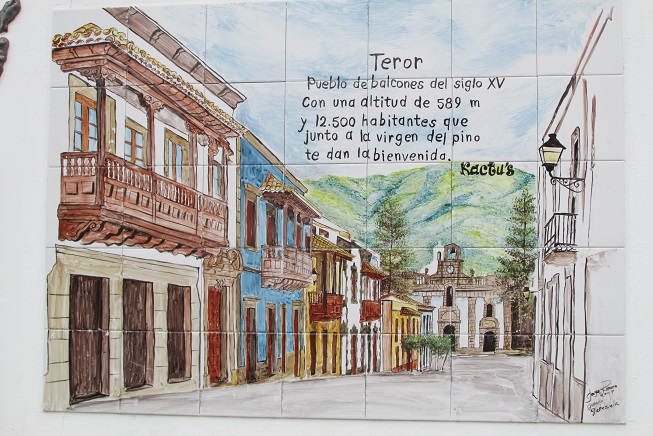 Teror
Pueblo de balcones del siglo XV
Con una altitud de 589 m
y 12.500 habitantes que
junto a la virgen del pino
te dan la bienvenida.
Kactu's